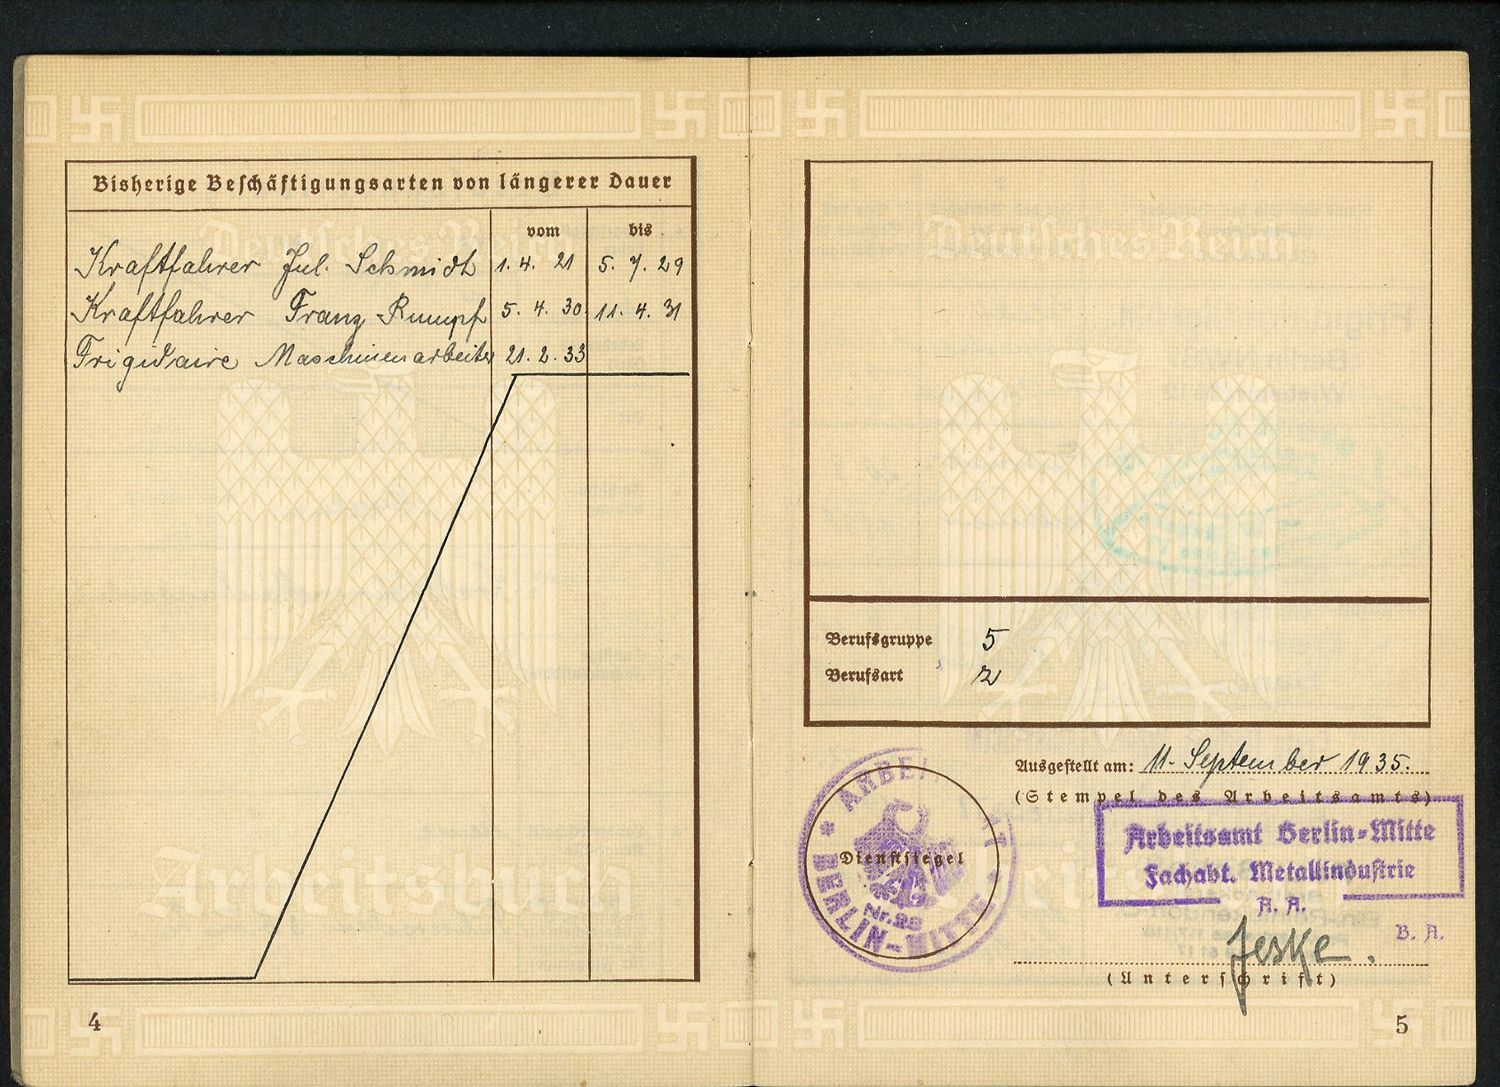 Bisherige Beschäftigungsarten von längerer Dauer
vom bis
Kraftfahrer Jul. Schmidt 1. 4. 21 5. 7. 29
Kraftfahrer Franz Rumpf 5. 4. 30 11. 4. 31
Frigidaire Maschinenarbeiter 21. 2. 33
Deutsches Reich
Arbeitsbuch
4
Deutsches Reich
Berufsgruppe 5
Berufsart 2
Ausgestellt am: 11. September 1935.
(Stempel des Arbeitsamts)
Arbeitsamt Berlin-Mitte
Fachabt. Metallindustrie
A. A.
B. A.
Jeske.
(Unterschrift)
Dienstsiegel
Nr. 28
BERLIN-MITTE
5